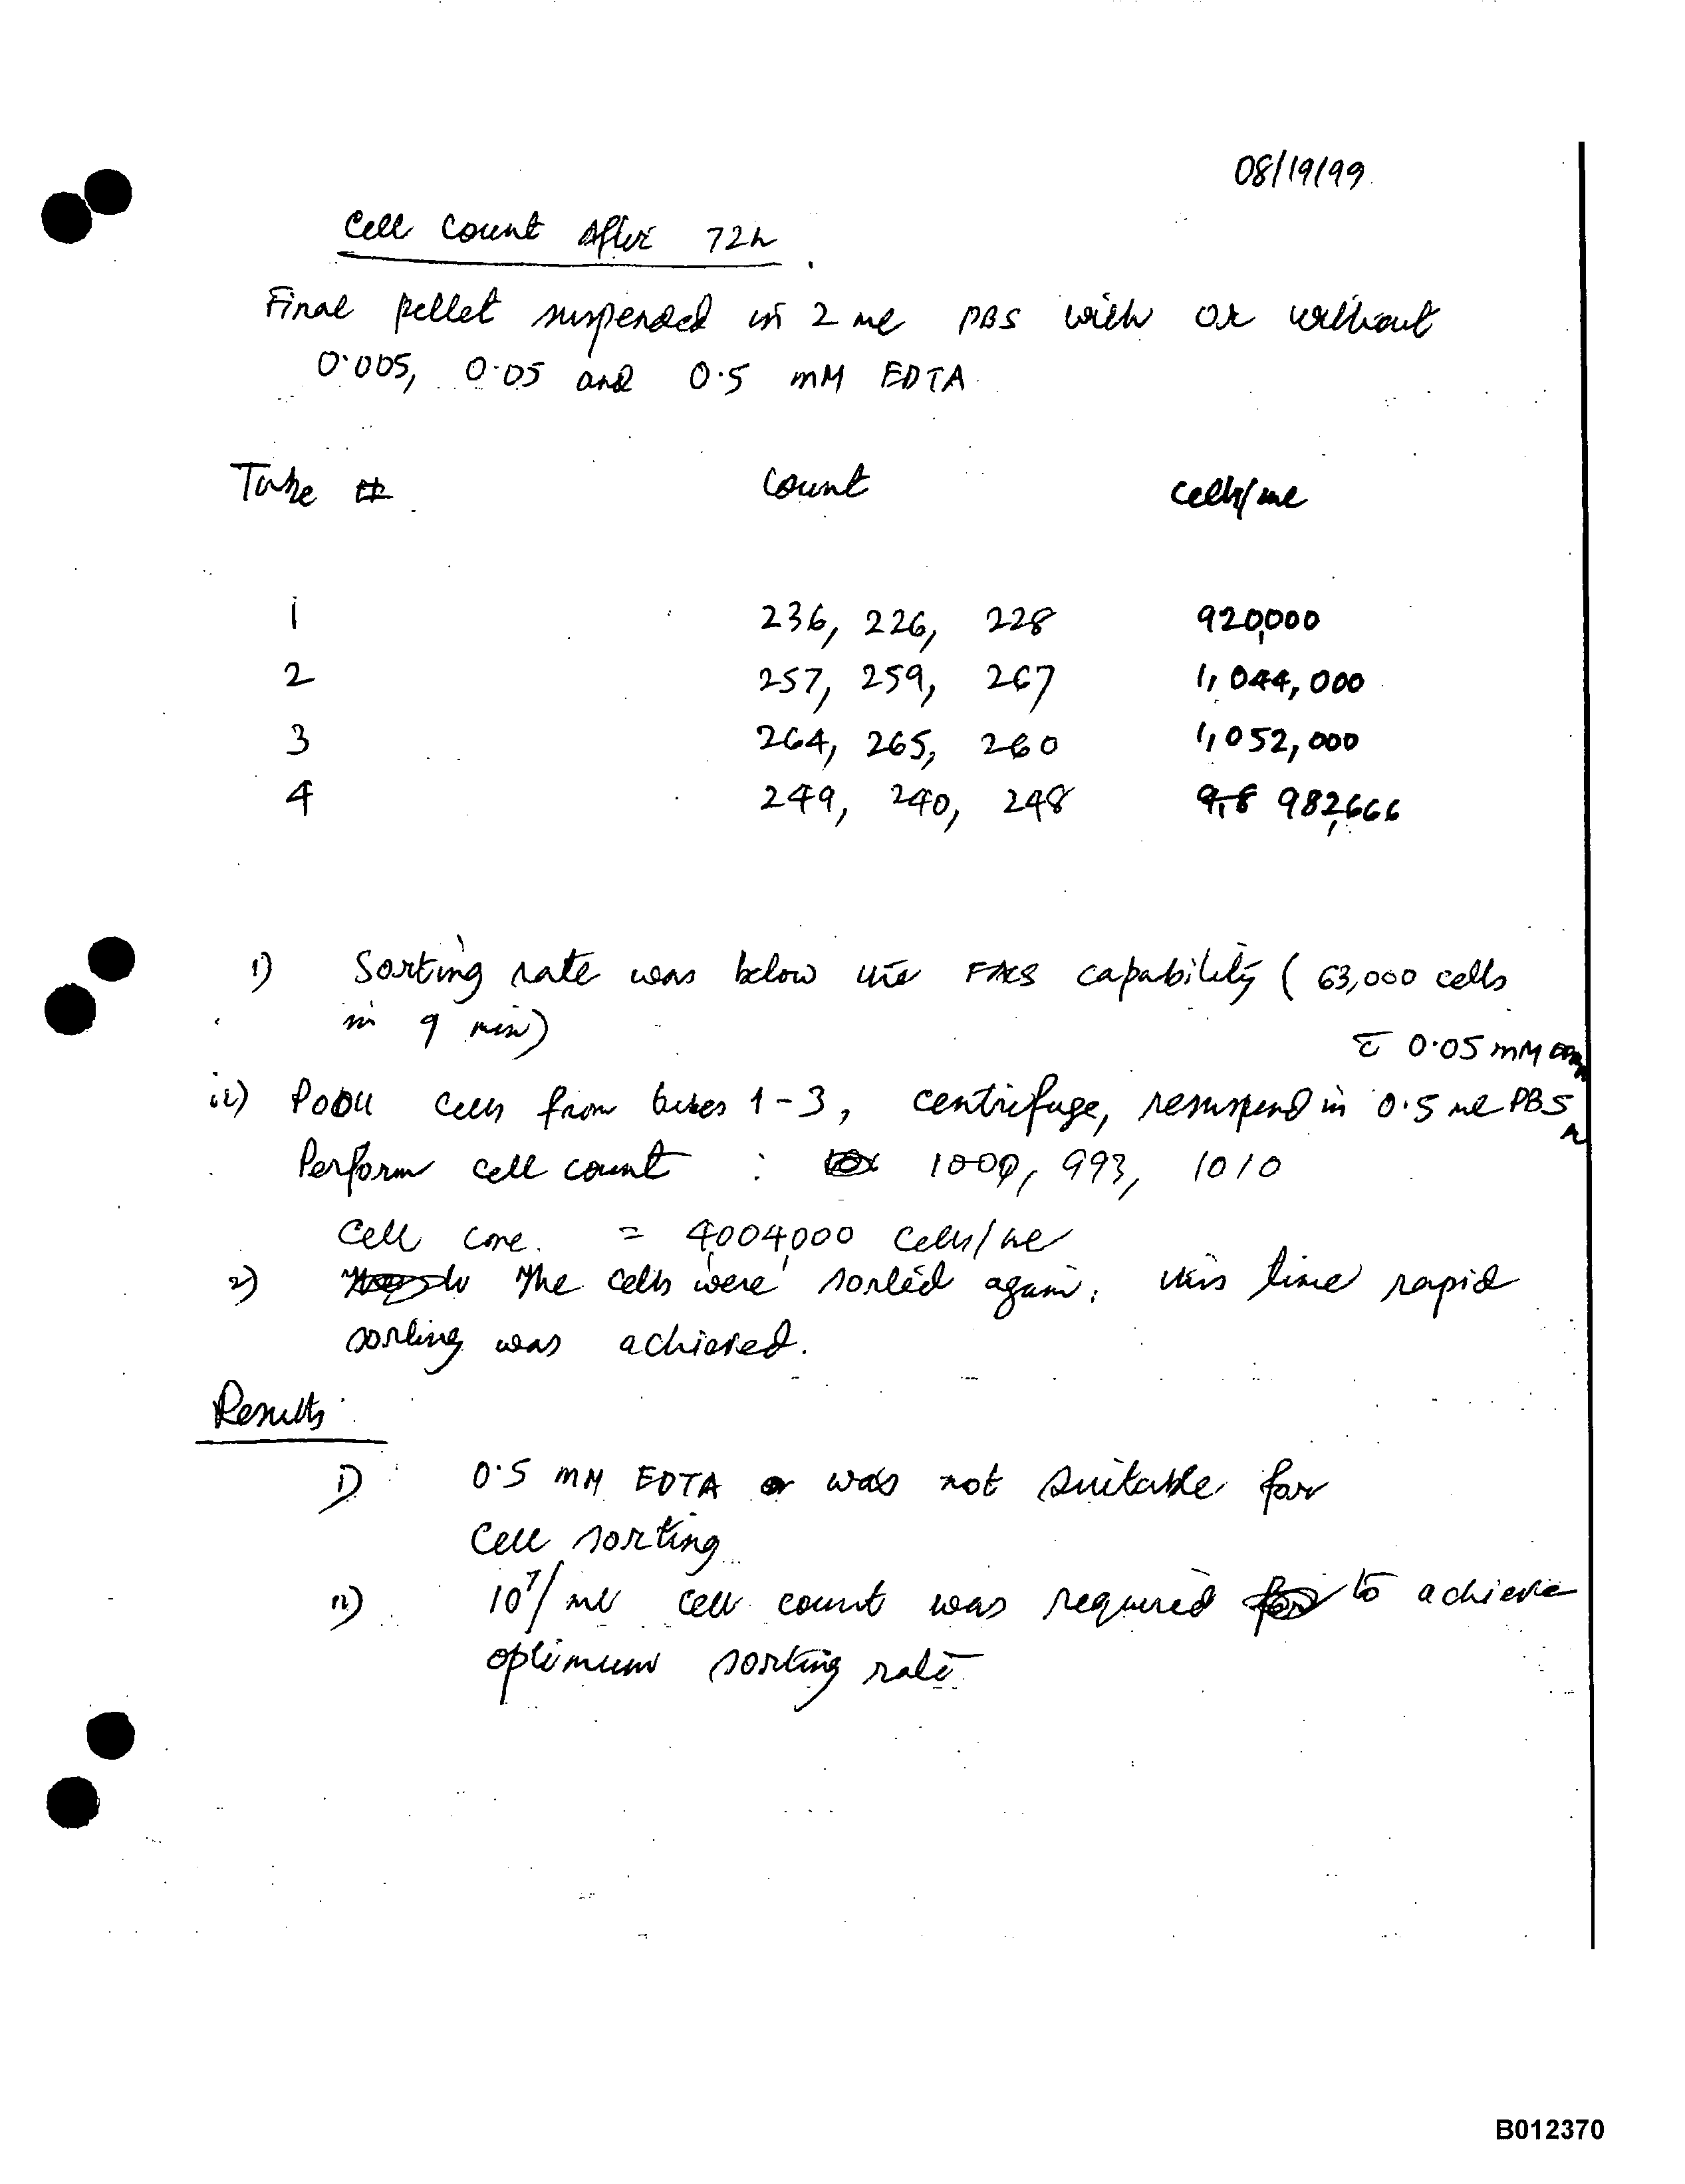 08/19/99
Cell Count After 72h.
Final pellet suspended in 2 ml PBS with or without
0.005, 0.05 and 0.5 mM EDTA
Tube # Count cells/ml
1 236, 226, 228 920,000
2 257, 259, 267 1,044,000
3 264, 265, 260 1,052,000
4 249, 240, 248 9,8 982,666
1) Sorting rate was below the FACS capability (63,000 cells
in 9 min)
c̄ 0.05 mM
ii) Pool cells from tubes 1-3, centrifuge, resuspend in 0.5 ml PBS
Perform cell count : 1000, 993, 1010
Cell conc. = 4,004,000 cells/ml
2) The cells were sorted again. this time rapid
sorting was achieved.
Results
i) 0.5 mM EDTA was not suitable for
Cell sorting
ii) 10⁷/ml cell count was required to achieve
optimum sorting rate
B012370